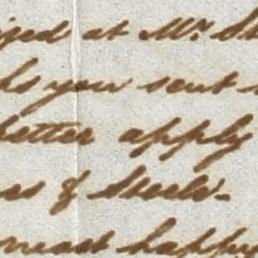 at Mr. St
you sent
better apply
& Steele.
most happy